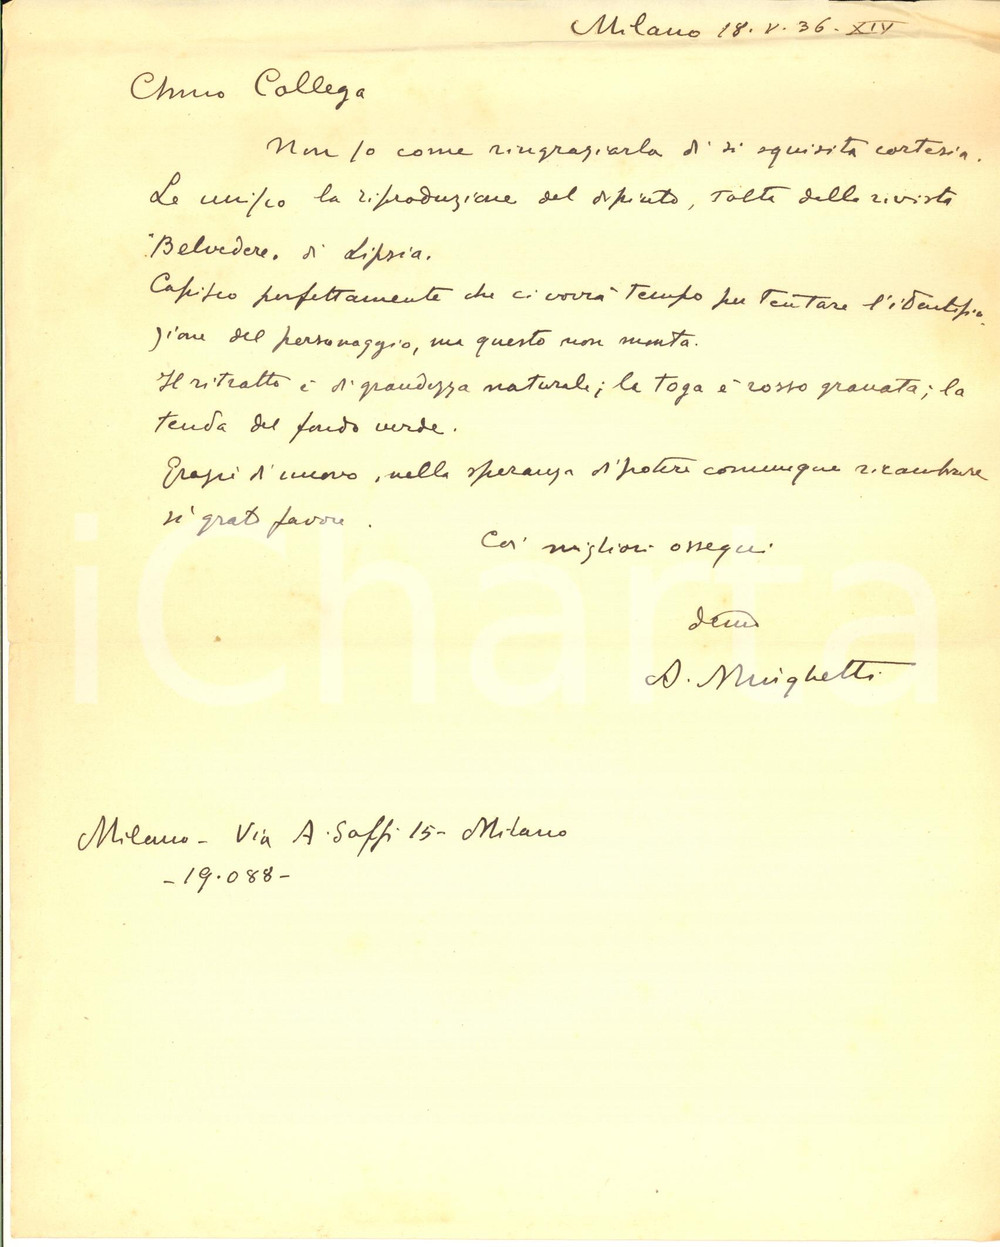 Milano 18. V. 36. XIV
Chmo Collega
Non so come ringraziarla di sì squisita cortesia.
Le unisco la riproduzione del dipinto, tolta dalla rivista
"Belvedere" di Lipsia.
Capisco perfettamente che ci vorrà tempo per tentare l'identifica-
zione del personaggio, ma questo non monta.
Il ritratto è di grandezza naturale; la toga è rosso granata; la
tenda del fondo verde.
Grazie di nuovo, nella speranza di potere comunque ricambiare
sì grato favore.
Coi migliori ossequi
demo
A. Minghetti
Milano - Via A. Saffi 15 - Milano
- 19.088 -
iCharta